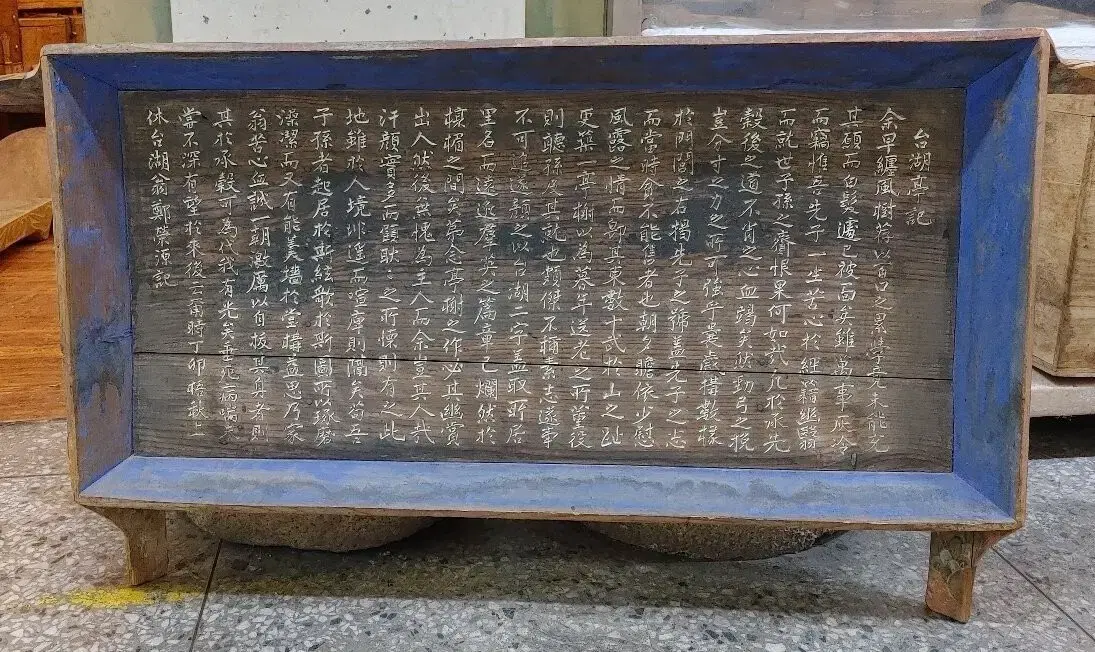 台湖亭記
余早纏風樹荐以百口之累學竟未能充
其願而白髮遽已被面英雖萬事灰冷
而竊惟吾先子一坐苦心於經籍幽翳
而就世子孫之齎恨果何如哉凡於承先
穀後之道不肖之心血竭矣然勁弓之挽
豈分寸之力之所可強年曩歲構數椽
於門閭之右揭先子之號盖先子之志
而當時貪不能售者也朝夕瞻依少慰
風露之情而郞其東數十武於山之趾
更築一亭榭以為暮年送老之所董役
則聽孫及其訛也頗傑不稱素志遂事
不可追遂題之以台湖二字盖取所居
里名而遠近羣英之篇章已爛然於
榱楣之間矣第念亭榭之作必其幽賞
出入然後無愧為主人而余豈其人哉
汗顔實多而顯耿之所慄則有之此
地雖於人境非遥而喧塵則闊矣苟吾
子孫者起居於斯絃歌於斯圖所以琢磨
澡潔而又有能美墻於堂構益思乃家
翁苦心血誠一朝激厲以自拔其身者則
其於承穀可為代我有光矣垂死病喘
嘗不深有望於來後云甭時丁卯梧秋上
休台湖翁鄭榮源記